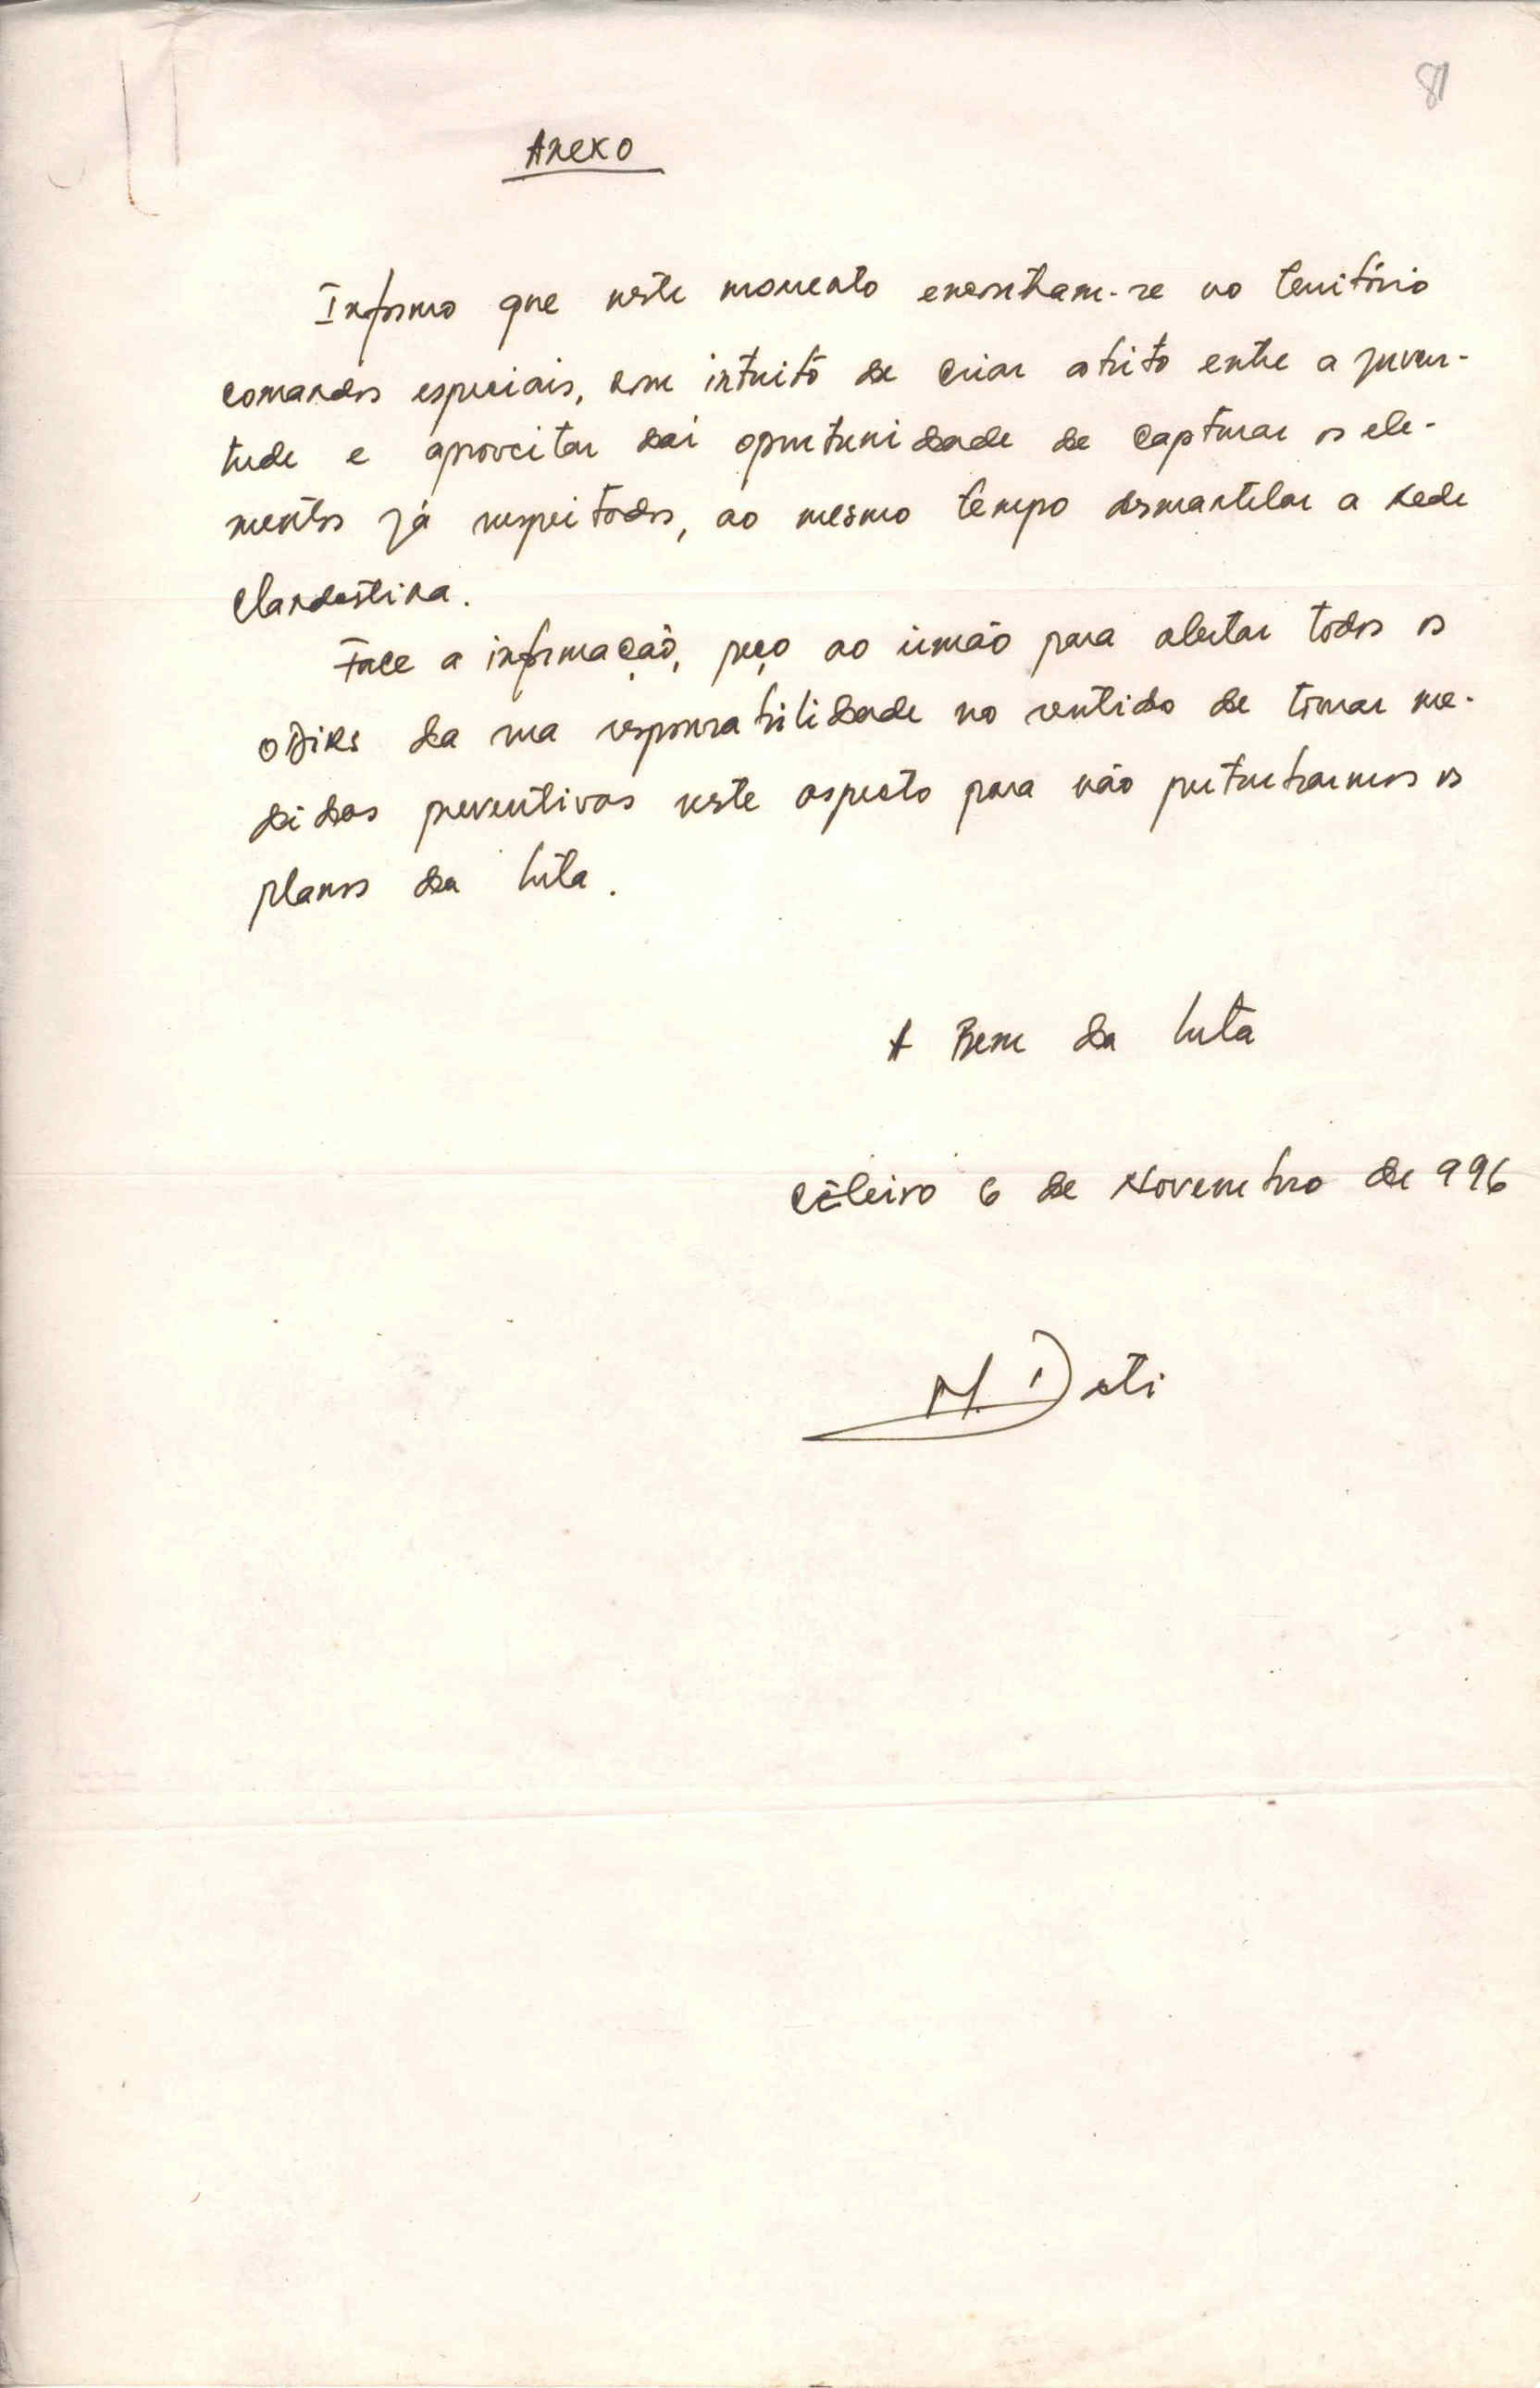 81
Anexo
Informo que neste momento encontram-se no território
comandos especiais, com intuito de criar atrito entre a juven-
tude e aproveitar daí oportunidade de capturar os ele-
mentos já suspeitados, ao mesmo tempo desmantelar a rede
clandestina.
Face a informação, peço ao irmão para alertar todos os
da sua responsabilidade no sentido de tomar me-
didas preventivas neste aspecto para não perturbarmos os
planos da luta.
A Bem da luta
6 de Novembro de 996
M. Deti